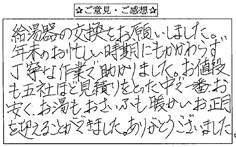 ☆ご意見・ご感想☆
給湯器の交換をお願いしました。
年末のお忙しい時期にもかかわらず
丁寧な作業で助かりました。お値段
も五社ほど見積りをとった中で一番お
安く、お湯もおさいふも暖かいお正月
を迎えることができました。ありがとうございました